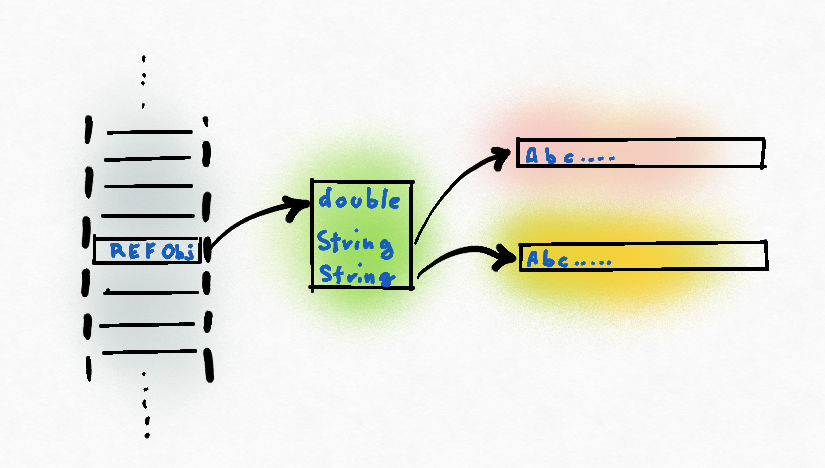 REFObj
double
String
String
Abc....
Abc.....